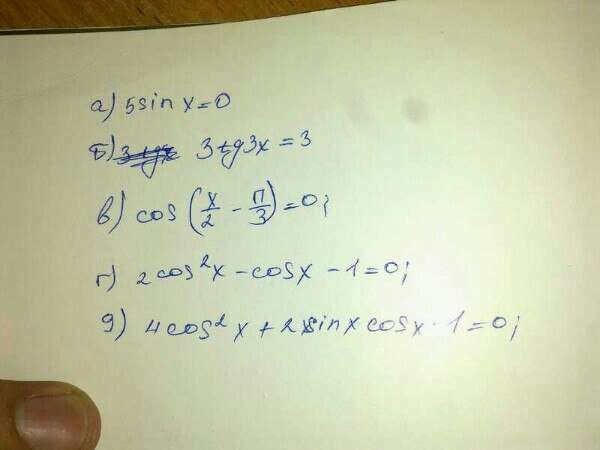 а) 5sin x=0
б) 3tg3x=3
в) cos (x/2 - π/3)=0;
г) 2cos²x-cosx-1=0;
д) 4cos²x+2sinxcosx-1=0;